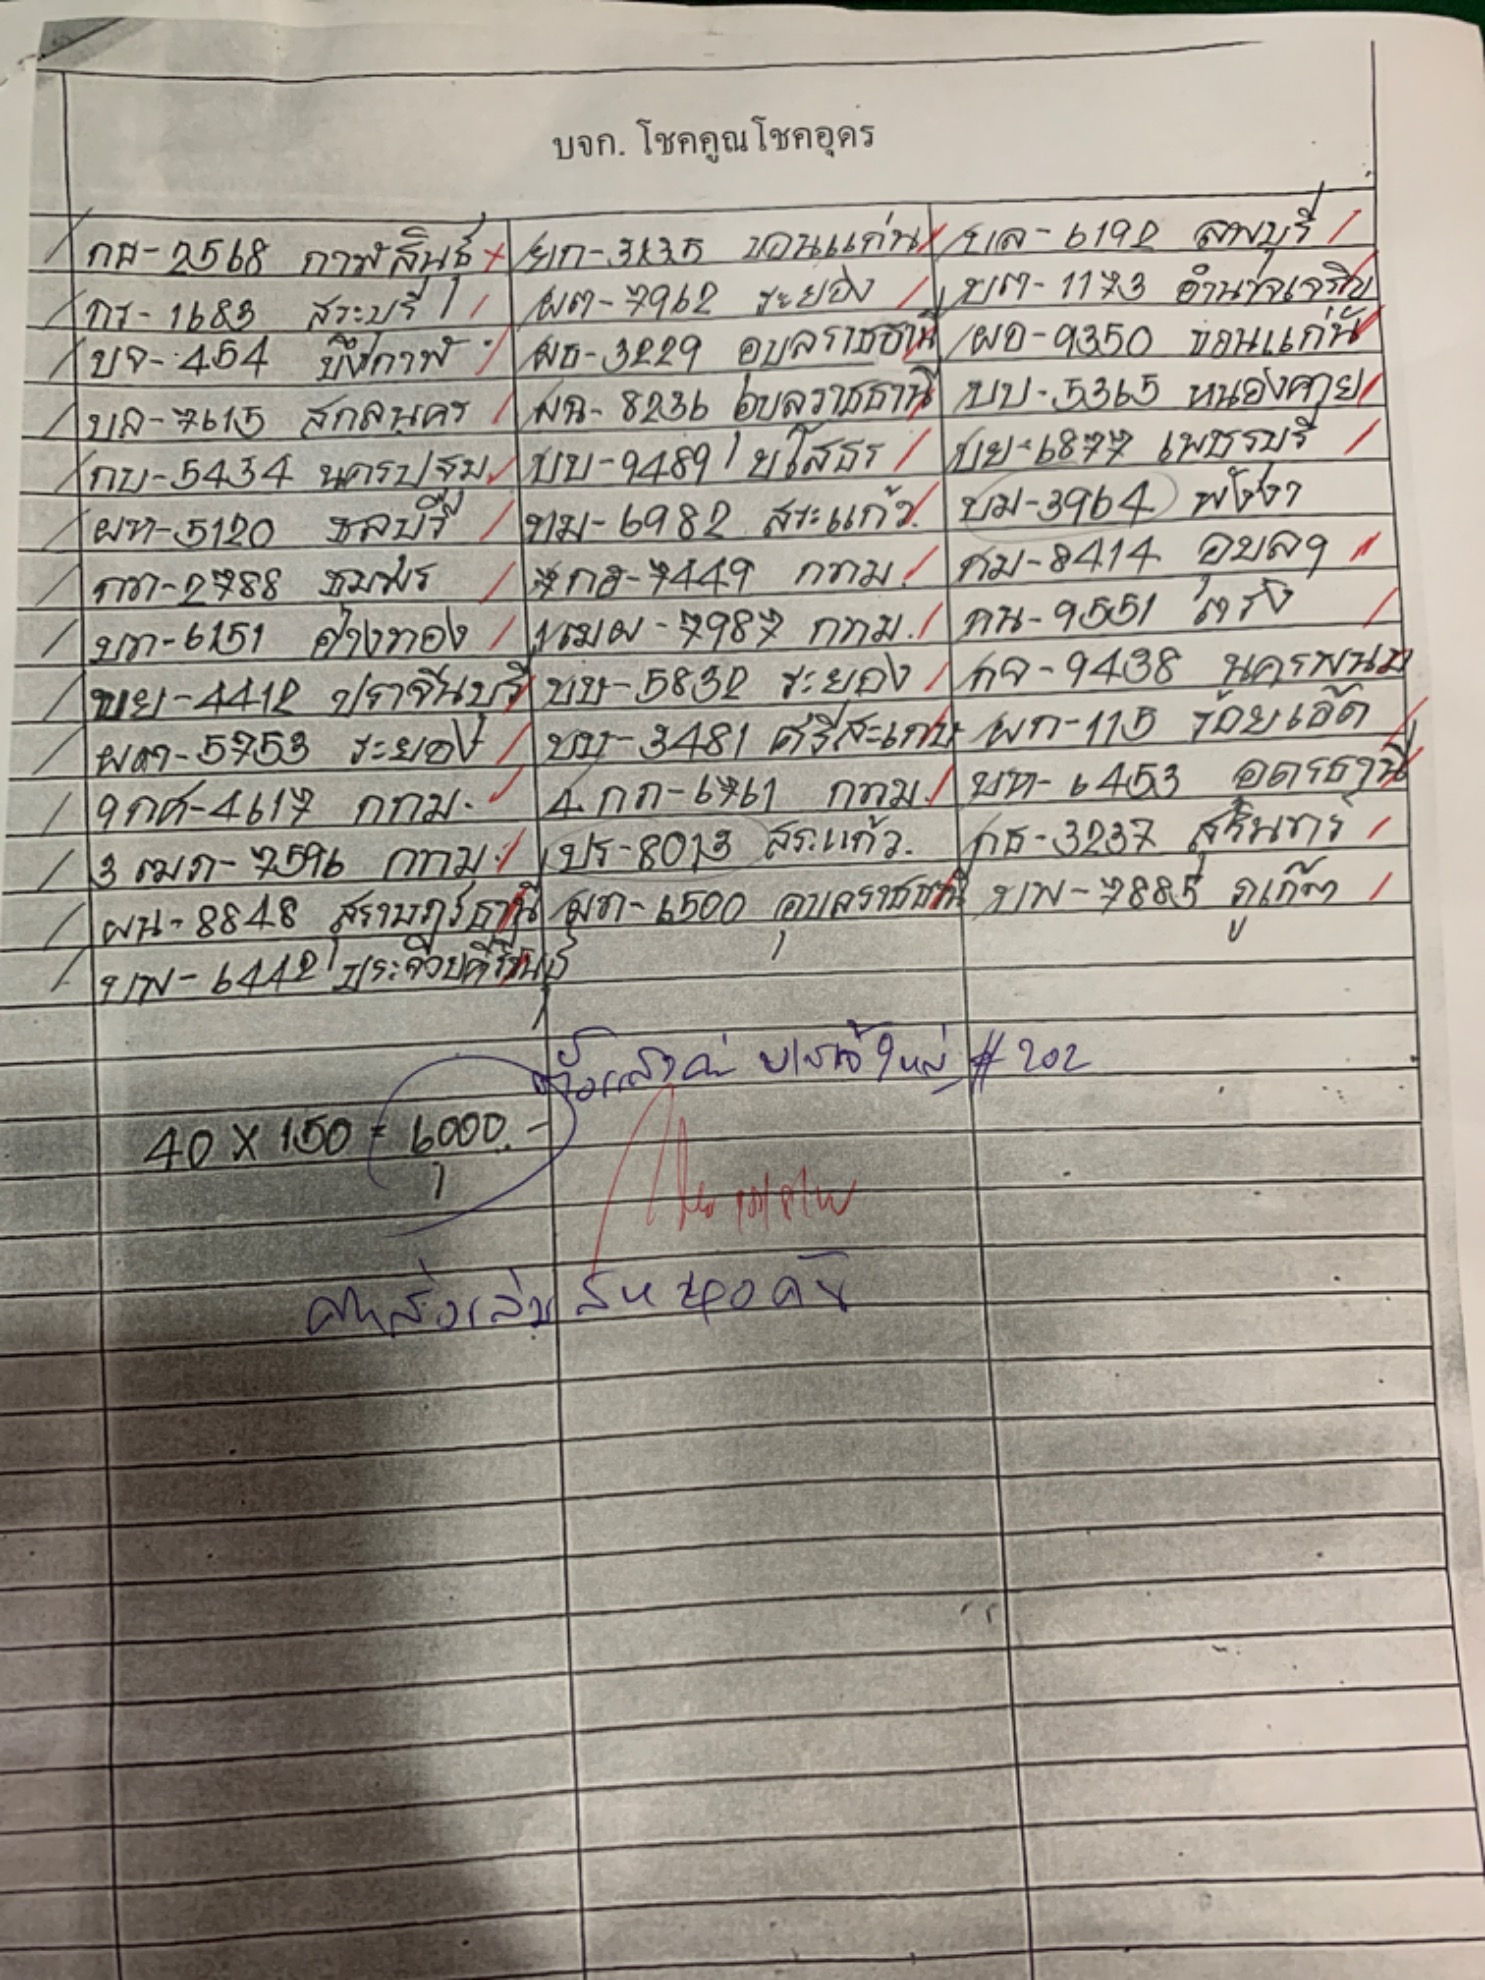 บจก. โชคคูณโชคอุดร
2568 กาฬสินธุ์ ยก-3235 ขอนแก่น บล-6192 ลพบุรี
1683 สระบุรี ผต-7962 ระยอง บต-1173 อำนาจเจริญ
บจ-454 บึงกาฬ ผธ-3229 อุบลราชธานี ผอ-9350 ขอนแก่น
7615 สกลนคร ผฉ-8236 อุบลราชธานี บบ-5365 หนองคาย
กบ-5434 นครปฐม บบ-9489 ยโสธร บย-6877 เพชรบุรี
ผท-5120 ชลบุรี 6982 สระแก้ว บม-3964 พังงา
2788 ชุมพร 7449 กทม. กม-8414 อุบลฯ
6151 อ่างทอง 1ฒผ-7987 กทม. กน-9551 ตรัง
ขย-4412 ปราจีนบุรี บษ-5832 ระยอง กจ-9438 นครพนม
ผต-5753 ระยอง บษ-3481 ศรีสะเกษ ผก-115 ร้อยเอ็ด
9กศ-4617 กทม. 4กภ-6761 กทม. บท-6453 อุดรธานี
3ฒภ-7596 กทม. ปร-8013 สระแก้ว. กธ-3237 สุรินทร์
ผน-8848 สุราษฎร์ธานี 6500 อุบลราชธานี บพ-7885 ภูเก็ต
บพ-6442 ประจวบคีรีขันธ์
#202
40 X 150 = 6000.-